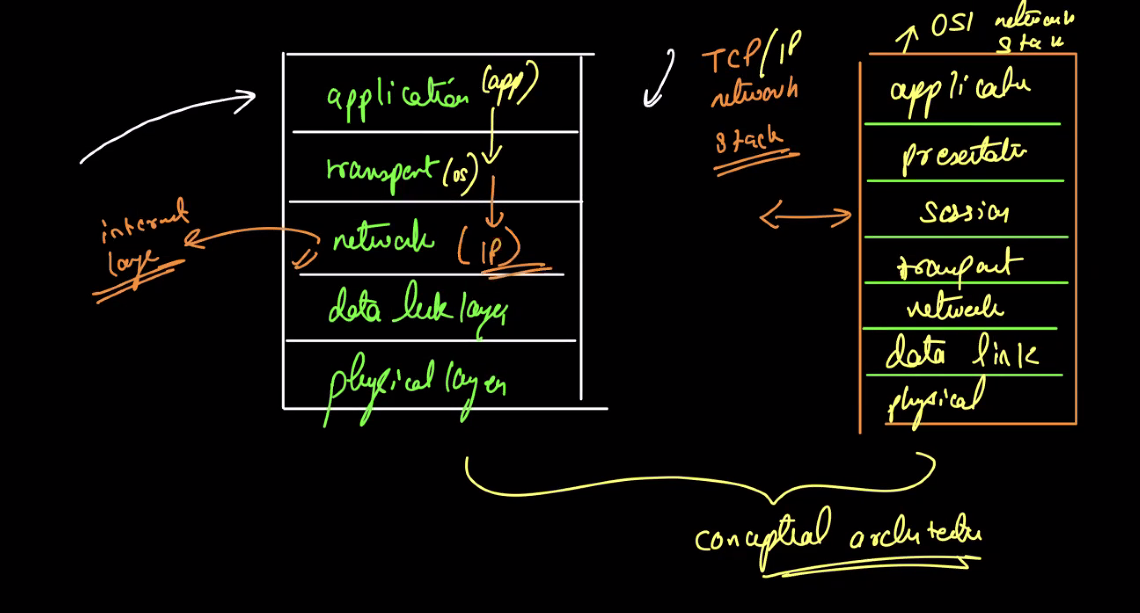 application (app)
transport (os)
network (IP)
data link layer
physical layer
internet
layer
TCP/IP
network
stack
OSI network
stack
application
presentati
session
transport
network
data link
physical
conceptual architectu